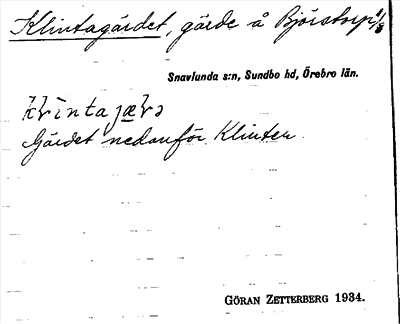 Klintagärdet, gärde å Björstorp 1/8
Snavlunda s:n, Sundbo hd, Örebro län.
Gärdet nedanför Klinten.
GÖRAN ZETTERBERG 1934.